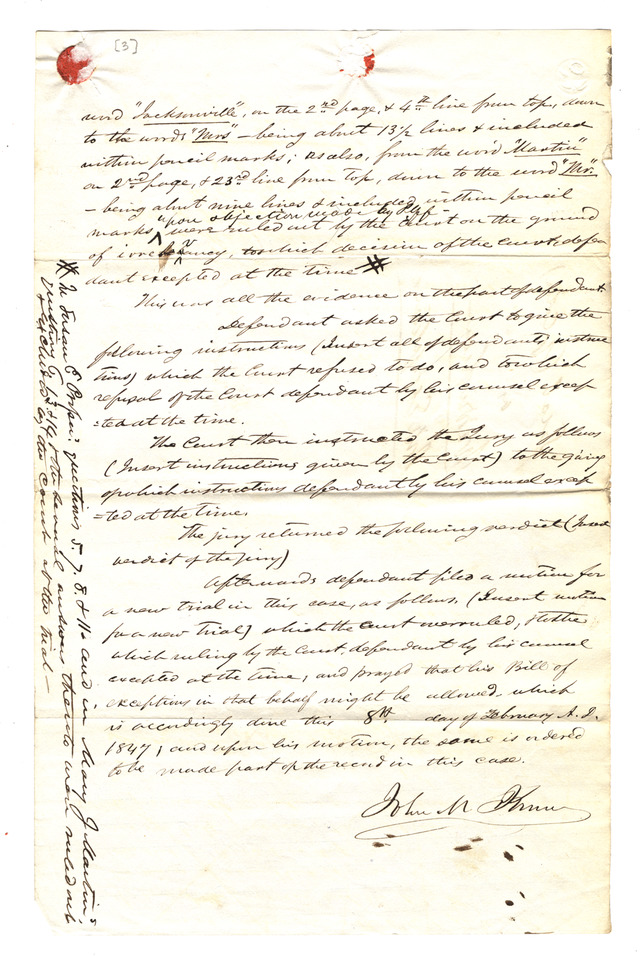 [3]
word "Jacksonville", on the 2nd page, & 4th line from top, down
to the words "Mrs" – being about 13½ lines & included
within pencil marks; as also, from the word "Martin"
on 2nd page, & 23rd line from top, down to the word "Mr."
– being about nine lines & included within pencil
upon objection made by Plff –
marks ^ were ruled out by the Court on the ground
of irrelevancy, to which decision of the Court, defen
dant excepted at the time #
This was all the evidence on the part of defendant.
Defendant asked the Court to give the
following instructions (Insert all of defendants instruc
tions) which the Court refused to do, and to which
refusal of the Court defendant by his counsel excep
=ted at the time.
The Court then instructed the Jury as follows
(Insert instructions given by the Court) to the giving
of which instructions defendant by his counsel excep
=ted at the time.
The jury returned the following verdict (Insert
verdict of the jury)
Afterwards defendant filed a motion for
a new trial in this case, as follows, (Insert motion
for a new Trial) which the Court overruled, & to the
which ruling by the Court, defendant by his counsel
excepted at the time, and prayed that his Bill of
exceptions in that behalf might be allowed, which
is accordingly done this 8th day of February A.D.
1847; and upon his motion, the same is ordered
to be made part of the record in this case.
John M
# In Susan E questions 5. 7. 8. & 11. and in Mary J Martin's
questions & 14 & the several answers thereto were ruled out
& excluded by the Court at the trial –